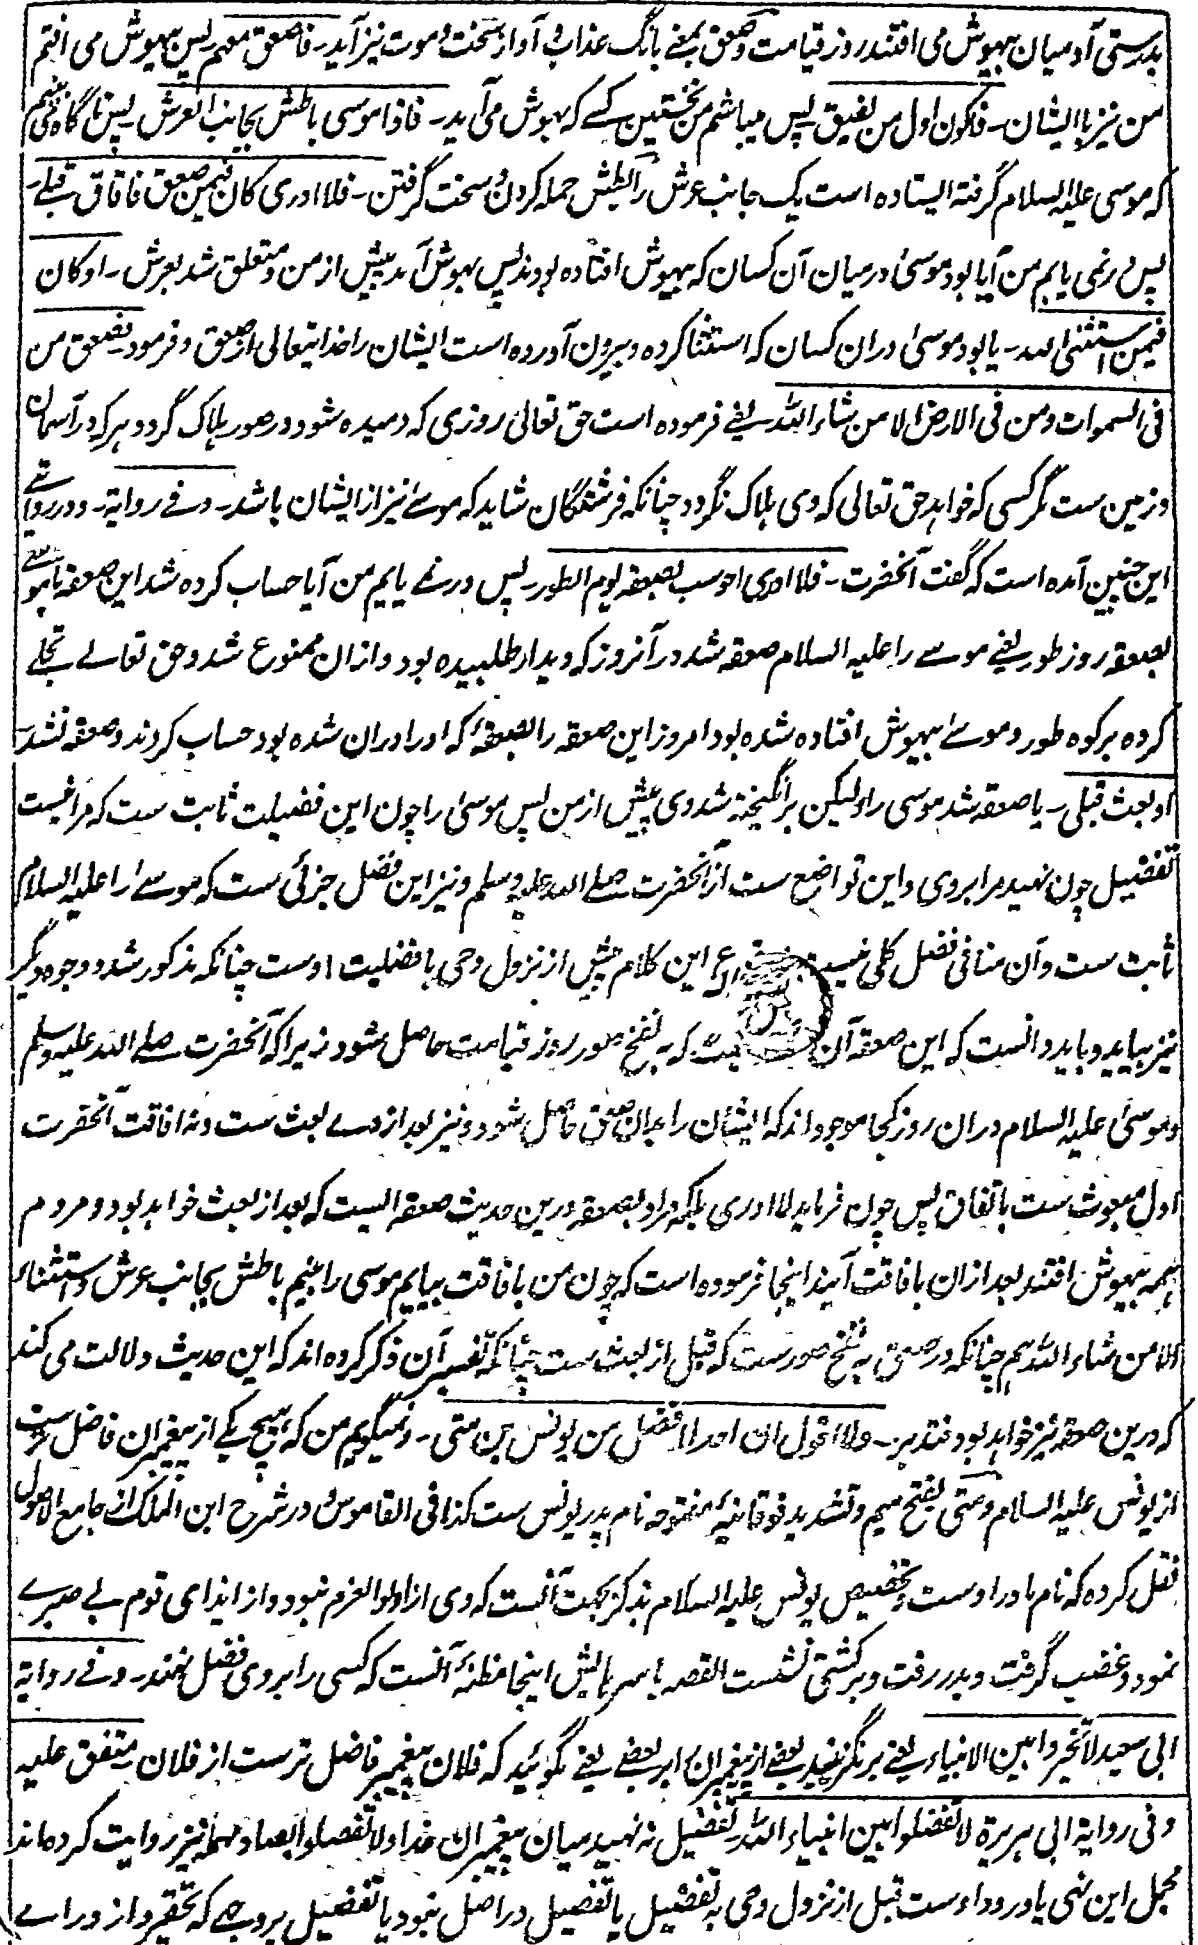 بدرستی آدمیان بیهوش می افتند روز قیامت وصعق بمعنے بانگ عذاب و آواز سخت و موت نیز آید۔ فاصعق معهم پس بیهوش می افتم
من نیز با ایشان۔ فاکون اول من یفیق پس میباشم من نخستین کسے که بهوش می آید۔ فاذا موسی باطش بجانب العرش پس ناگاه می بینم
که موسی علیه السلام گرفته ایستاده است یک جانب عرش را بطش حمله کردن و سخت گرفتن۔ فلا ادری کان فیمن صعق فافاق قبلے۔
پس در نمی یابم من آیا بود موسیٰ در میان آن کسان که بیهوش افتاده بودند پس بهوش آمد پیش از من و متعلق شد بعرش۔ او کان
فیمن استثنی الله۔ یا بود موسیٰ دران کسان که استثنا کرده و بیرون آورده است ایشان را خدایتعالی از صعق و فرمود فصعق من
فی السموات ومن فی الارض الا من شاء الله یعنے فرموده است حق تعالیٰ روزی که دمیده شود در صور هلاک گردد هر که در آسمان
و زمین ست مگر کسی که خواهد حق تعالی که وی هلاک نگردد چنانکه فرشتگان شاید که موسےٰ نیز از ایشان باشد۔ وفے روایة۔ و در روایتے
این چنین آمده است که گفت آنحضرت۔ فلا ادری احوسب بصعقة یوم الطور۔ پس در نے یابم من آیا حساب کرده شد این صعقه با موسے
بصعقه روز طور یعنے موسے را علیه السلام صعقه شد در آنروز که دیدار طلبیده بود و ازان ممنوع شد و حق تعالے تجلے
کرده بر کوه طور و موسےٰ بیهوش افتاده شده بود امروز این صعقه را بصعقهٔ که او را دران شده بود حساب کردند و صعقه نشد۔
او بعث قبلی۔ یا صعقه شد موسی را ولیکن برانگیخته شد وی پیش از من پس موسیٰ را چون این فضیلت ثابت ست که مرا نیست
تفضیل چون نهید مرا بر وی و این تواضع ست از آنحضرت صلے الله علیه وسلم و نیز این فضل جزئی ست که موسےٰ را علیه السلام
ثابت ست و آن منافی فضل کلی نیست این کلام پیش از نزول وحی بافضلیت اوست چنانکه مذکور شد و وجوه دیگر
نیز بیاید و باید دانست که این صعقه آن که به نفخ صور روز قیامت حاصل شود زیرا که آنحضرت صلے الله علیه وسلم
و موسیٰ علیه السلام دران روز کجا موجود اند که ایشان را بدان صعق حاصل شود و نیز بعد از وے بعث ست و نه افاقت آنحضرت
اول مبعوث ست باتفاق پس چون فرماید لا ادری بلکه مراد بصعقه درین حدیث صعقه ایست که بعد از بعث خواهد بود و مردم
همه بیهوش افتند بعد ازان بافاقت آیند اینجا فرموده است که چون من بافاقت بیایم موسی را بینم باطش بجانب عرش و استثناء
الا من شاء الله هم چنانکه در صعق به نفخ صور ست که قبل از بعث ست چنانکه تفسیر آن ذکر کرده اند که این حدیث دلالت می کند
که درین صعقه نیز خواهد بود فتدبر۔ ولا اقول ان احدا افضل من یونس بن متی۔ و نمیگویم من که هیچ یکے از پیغمبران فاضل تر ست
از یونس علیه السلام و متی بفتح میم و تشدید فوقانیهٔ مفتوحه نام پدر یونس ست کذا فی القاموس و در شرح ابن الملک از جامع الاصول
نقل کرده که نام مادر اوست و تخصیص یونس علیه السلام بذکر بجهت آنست که وی از اولوا العزم نبود و از ایذای قوم بے صبرے
نمود و غضب گرفت و بدر رفت و بر کشتی نشست القصه با سر بالیش اینجا مظنهٔ آنست که کسی را بر وی فضل نهند۔ وفے روایة
ابی سعید لا تخیروا بین الانبیاء یعنے بر نگزینید بعضے از پیغمبران را بر بعضے یعنے نگوئید که فلان پیغمبر فاضل تر ست از فلان۔ متفق علیه
وفی روایة ابی هریرة لا تفضلوا بین انبیاء الله۔ تفضیل نه نهید میان پیغمبران خدا ولا تفصلوا بصاد مهمله نیز روایت کرده اند
محمل این نهی یا ورود اوست قبل از نزول وحی به تفضیل یا تفضیل در اصل نبوت یا تفضیل بر وجهے که تحقیر و ازدرائے